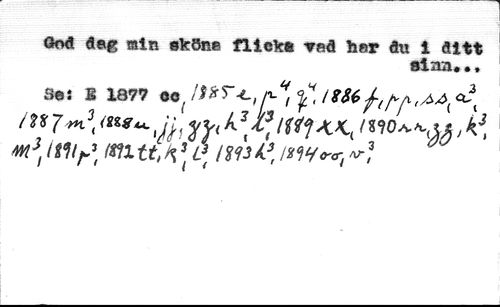 God dag min sköna flicka vad har du i ditt
sinn...
Se: E 1877 cc, 1885 e, p⁴, q⁴. 1886 f, pp, ss, a³,
1887 m³, 1888 u, jj, zz, h³, l³, 1889 xx, 1890 rr, zz, k³,
m³, 1891 p³, 1892 tt, k³, l³, 1893 h³, 1894 oo, v³,